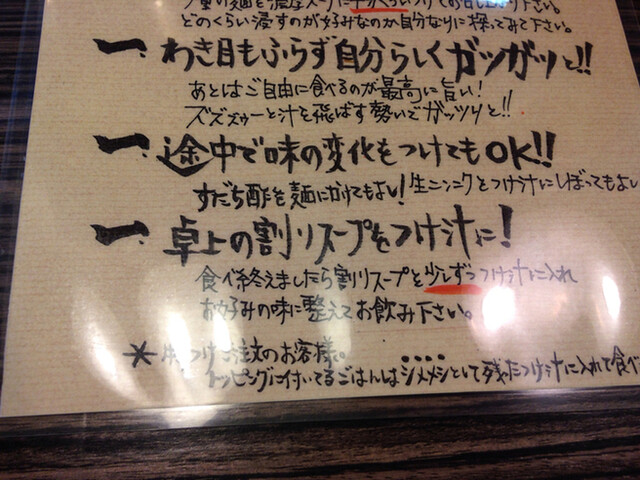 どのくらい浸すのが好みなのか自分なりに探ってみて下さい。
一、わき目もふらず自分らしくガツガツと!!
あとはご自由に食べるのが最高に旨い!
ズズズゥーと汁を飛ばす勢いでガッツリと!!
一、途中で味の変化をつけてもOK!!
すだち酢を麺にかけてもよし!生ニンニクをつけ汁にしぼってもよし
一、卓上の割りスープをつけ汁に!
食べ終えましたら割りスープを少しずつつけ汁に入れ
お好みの味に整えてお飲み下さい。
つけご注文のお客様。
トッピングに付いてるごはんはシメメシとして残ったつけ汁に入れて食べ